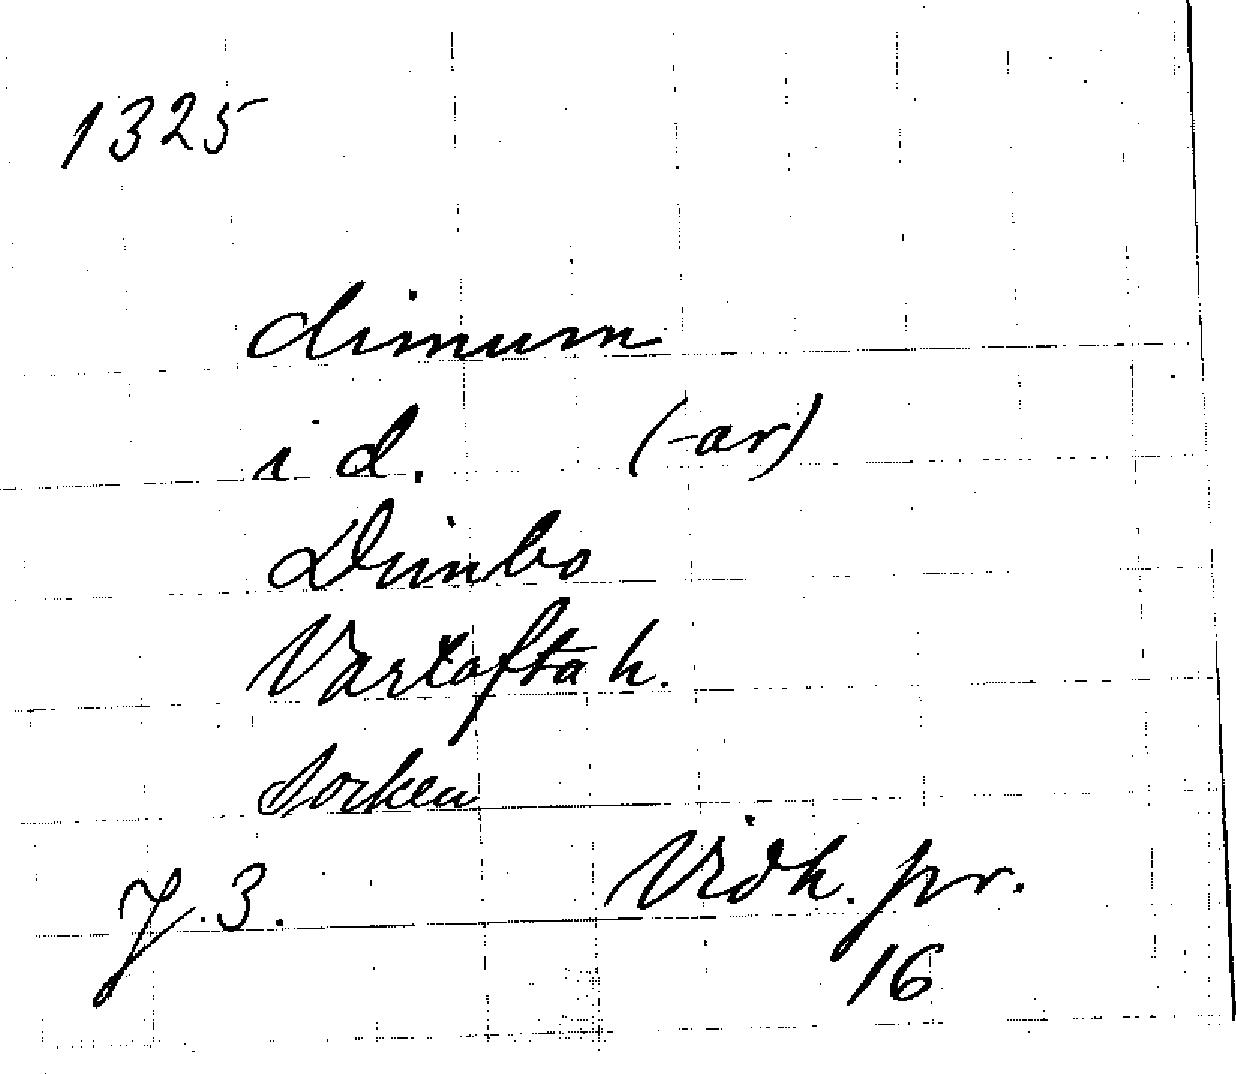 1325
dimum
i d. (-ar)
Dimbo
Vartofta h.
Socken
J. 3. Vidh. pr.
16